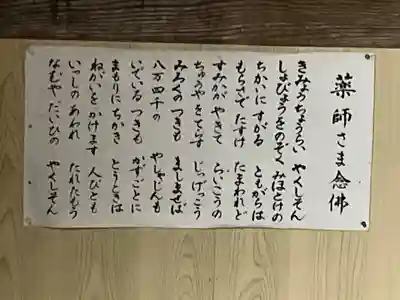 薬師さま念佛
きみょうちょうらい やくしそん
しょびょうをのぞく みほとけの
ちかいに すがる ともがらは
もらさで たすけ たまわれど
すみかがやきて らいこうの
ちゅうやをてらす じっげっこう
みろくの つきも ましませば
八万四千の やしゃじんも
いている つきも かずごとに
まもりに ちかき とうときは
ねがいを かけます 人びとも
いっしの あわれ たれたもう
なむや だいひの やくしそん